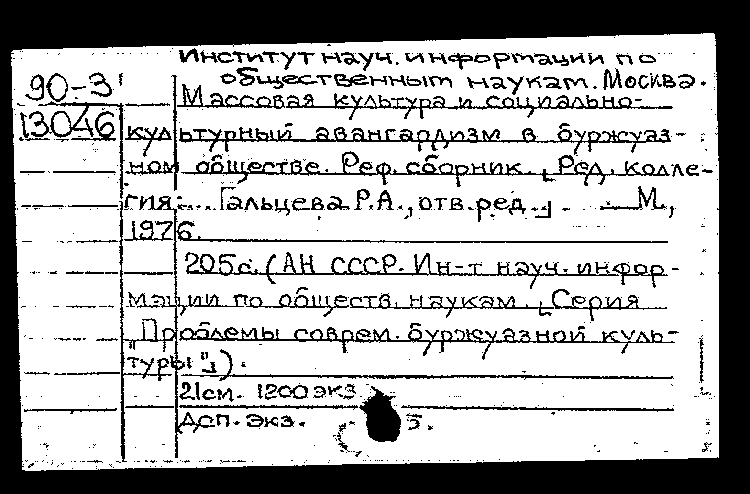 Институт науч. информации по
общественным наукам. Москва.
90-3
13046
Массовая культура и социально-
культурный авангардизм в буржуаз-
ном обществе. Реф. сборник. [Ред. колле-
гия: ... Гальцева Р.А., отв. ред.]. — М.,
1976.
205с. (АН СССР. Ин-т науч. инфор-
мации по обществ. наукам. [Серия
"Проблемы соврем. буржуазной куль-
туры"]).
21см. 1200 экз
Доп. экз. 5.